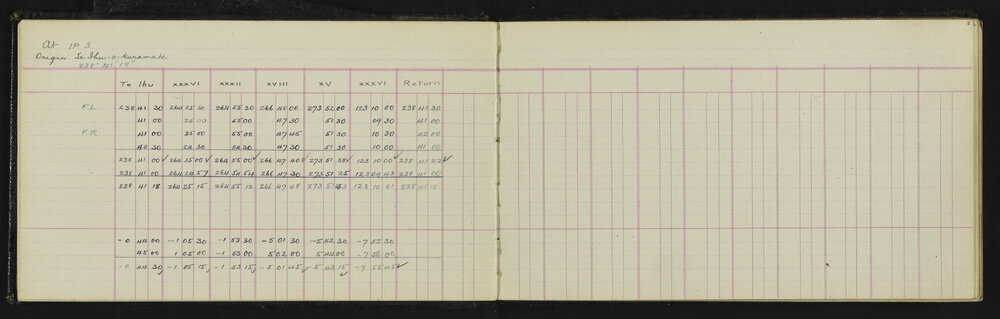 At I.P. 3.
Origin Te Ihu-o-Kuramate
238° 41' 18"
Te Ihu XXXVI XXXII XVIII XV XXXVI Return
F.L. 238 41 30 264 25 30 264 55 30 266 48 00 273 52 00 123 10 00 238 41 30
41 00 25 00 55 00 47 30 51 30 09 30 41 00
F.R. 41 00 25 00 55 00 47 45 51 30 10 30 42 00
40 30 24 30 54 30 47 30 51 30 10 00 41 00
238 41 00 ✓ 264 25 00 ✓ 264 55 00 ✓ 266 47 40 ✓ 273 51 38 ✓ 123 10 00 ✓ 238 41 22 ✓
238 41 00 264 24 57 264 54 54 266 47 30 273 51 25 123 09 43 238 41 00
238 41 18 264 25 15 264 55 12 266 47 48 273 51 43 123 10 01 238 41 18
-0 44 00 -1 05 30 -1 53 30 -5 01 30 -5 42 30 -7 55 30
45 00 1 05 00 -1 53 00 5 02 00 5 44 00 -7 56 00
-0 44 30 ✓ -1 05 15 ✓ -1 53 15 ✓ -5 01 45 ✓ -5 43 15 ✓ -7 55 45 ✓